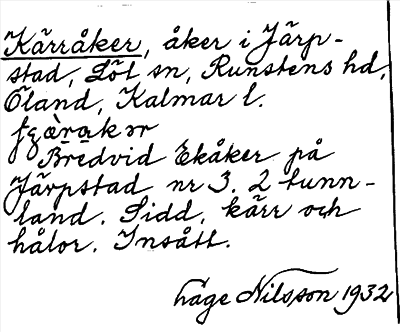 Kärråker, åker i Järp-
stad, Löt sn, Runstens hd,
Öland, Kalmar l.
Bredvid Ekåker på
Järpstad nr 3. 2 tunn-
land. Sidd, kärr och
hålor. Insått.
Håge Nilsson 1932